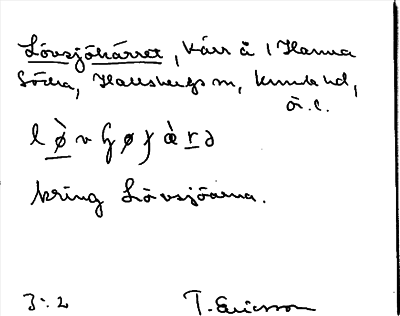 Lövsjökärret, kärr å 1 Hanna
Södra, Hallsbergs sn, Kumla hd,
ör. l.
l ø̀ v ʃ ø ʃ æ̀ r ə
kring Lövsjöarna.
3:2 T. Ericsson